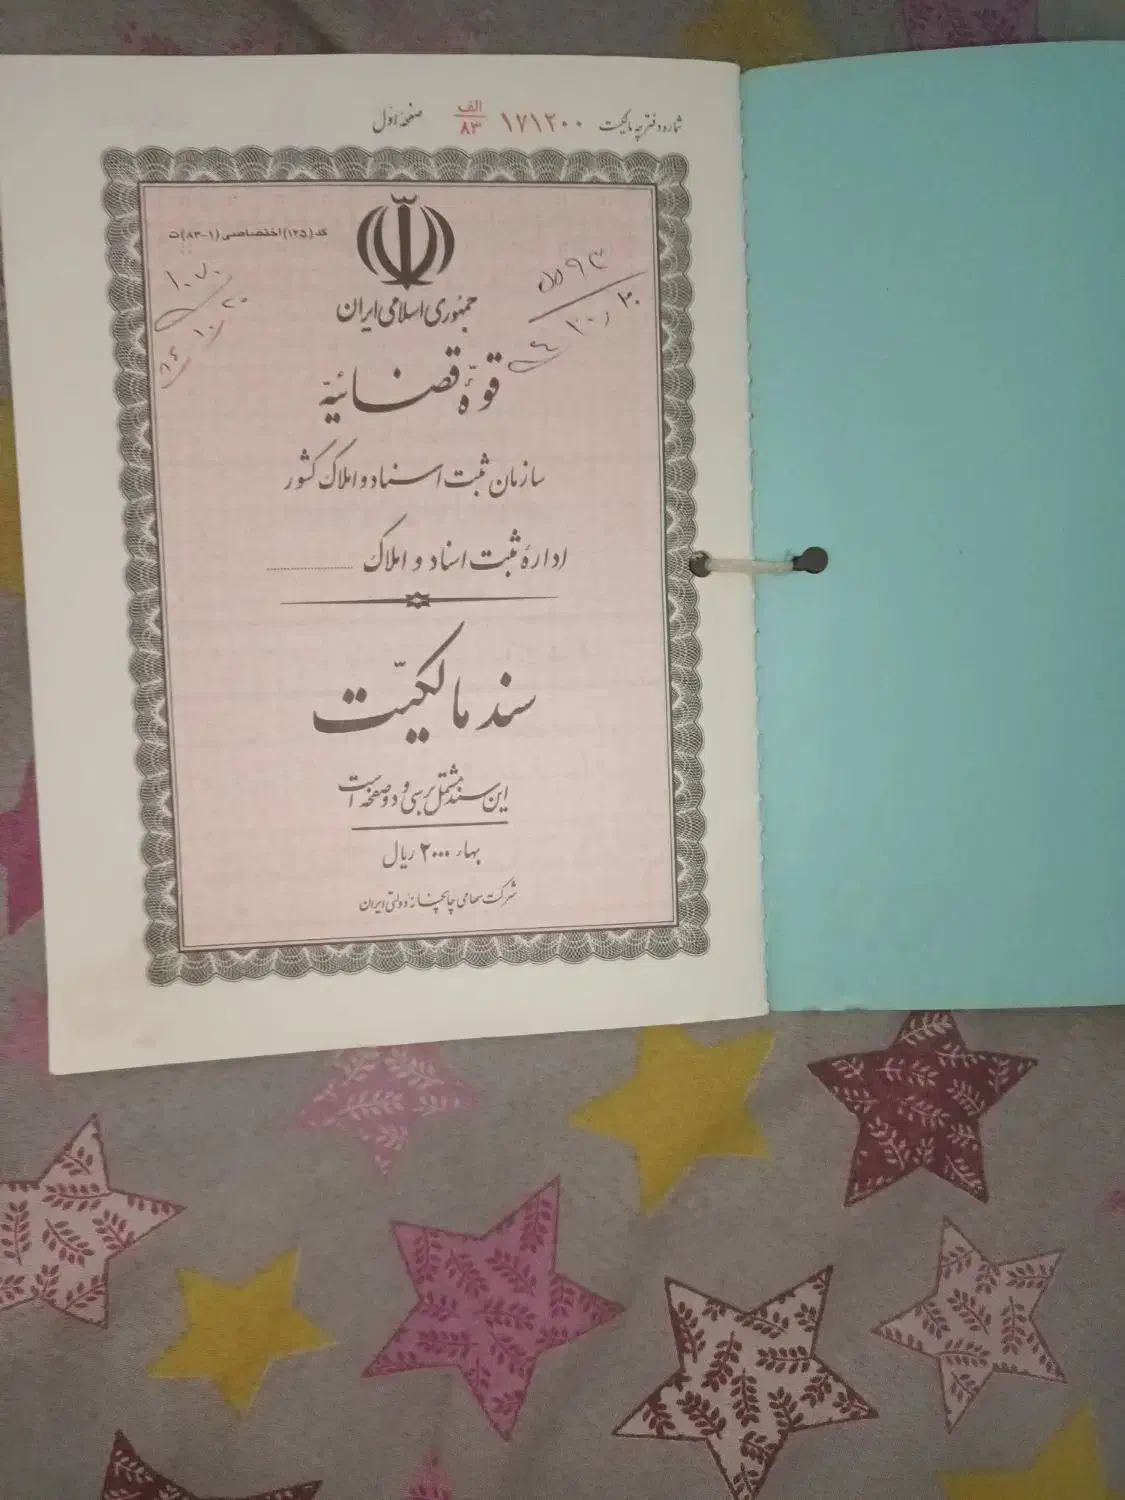 شماره دفترچه مالکیت ۱۷۱۲۰۰ الف ۸۳ صفحه اول
کد (۱۲۵) اختصاصی (۱-۸۳) ت
جمهوری اسلامی ایران
قوّهٔ قضائیّه
سازمان ثبت اسناد و املاک کشور
ادارهٔ ثبت اسناد و املاک ..................
سند مالکیّت
این سند مشتمل بر سی و دو صفحه است
بهاء ۲۰۰۰ ریال
شرکت سهامی چاپخانهٔ دولتی ایران